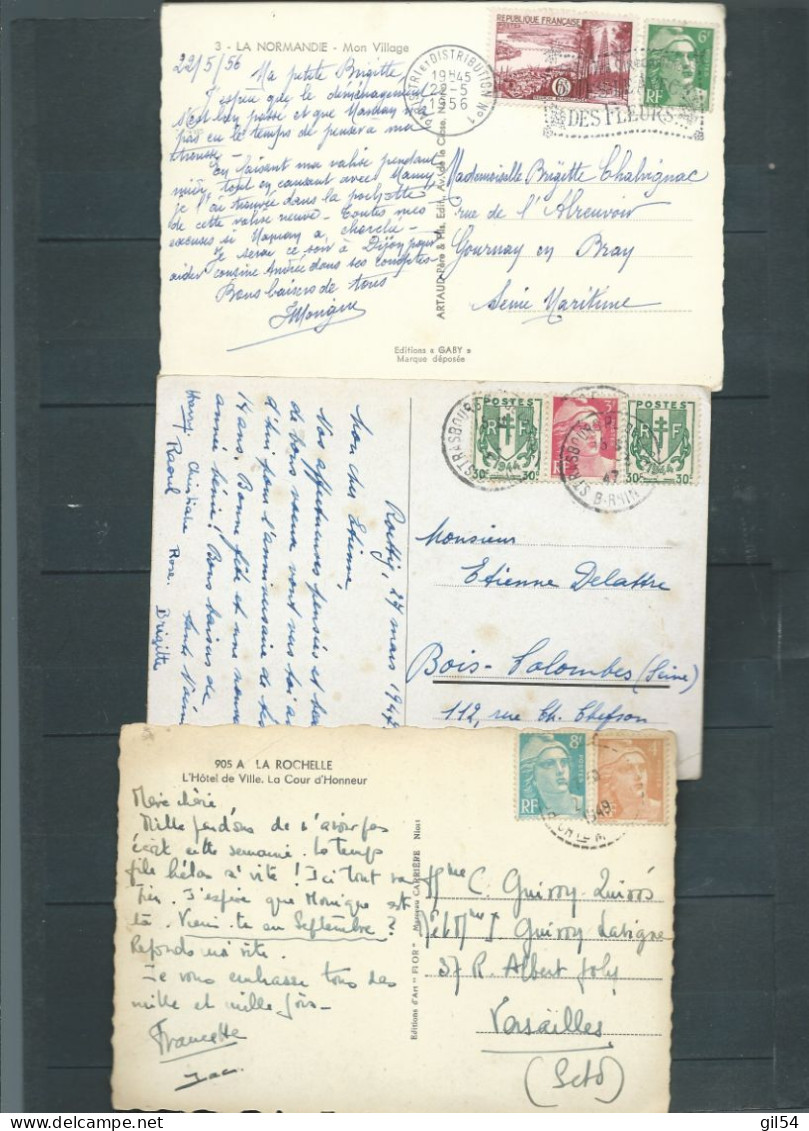 3 - LA NORMANDIE - Mon Village
22/5/56
Ma petite Brigitte,
J'espère que le déménagement
s'est bien passé et que
pas eu le temps de penser à ma
trousse -
En faisant ma valise pendant
tout en causant avec Mamy
je l'ai trouvée dans la pochette
de cette valise neuve - Toutes mes
excuses si Maman a cherché -
Je serai ce soir à Dijon pour
aider cousine Andrée dans ses comptes -
Bons baisers de tous
Monique
Editions « GABY »
Marque déposée
ARTAUD Père & Fils, Edit., Av. de la Close, N
REPUBLIQUE FRANÇAISE
6F
6F
RF
TRI ET DISTRIBUTION No 1
19H45
22-5
1956
DES FLEURS
Mademoiselle Brigitte Chabrignac
rue de l'Abreuvoir
Gournay en Bray
Seine Maritime
27 mars 1947
Mon cher Etienne
Nos affectueuses pensées et
de bons vœux vont vers toi
d'hui pour l'anniversaire de tes
14 ans. Bonne fête et une
année bénie! Bons baisers de
tante
Christiane Rose.
Raoul
Brigitte
POSTES
RF
1944
30c 30c
POSTES
RF
1944
30c 30c
STRASBOURG
STRASBOURG
47
B-RHIN
Monsieur
Etienne Delattre
Bois-Colombes (Seine)
112, rue Ch. Chefson
905 A LA ROCHELLE
L'Hôtel de Ville. La Cour d'Honneur
Mère chérie
Mille pardons de n'avoir pas
écrit cette semaine. Le temps
file hélas si vite! Ici tout va
bien. J'espère que Monique est
là. Viens-tu en Septembre?
Réponds moi vite.
Je vous embrasse tous des
mille et mille fois -
Francette
Jac.
Editions d'Art "FLOR" Marceau CARRIÈRE Niort
8F
POSTES
RF
4F
1949
Mme C. Guirry-Quirós
M et Mme J. Guirry Lavigne
37 R. Albert Joly
Versailles
(S et O)
gil54